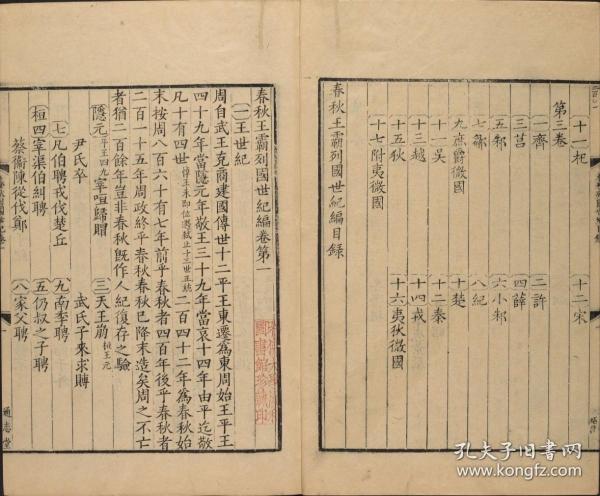 十一杞
十二宋
第三卷
一齊
二許
三莒
四薛
五邾
六小邾
七鄫
八紀
九庶爵微國
十楚
十一吳
十二秦
十三越
十四戎
十五狄
十六夷狄微國
十七附夷微國
春秋王霸列國世紀編目録
春秋王霸列國世紀編卷第一
一王世紀
周自武王克商建國傳世十二平王東遷為東周始王平王
四十九年當隱元年敬王三十九年當哀十四年由平迄敬
凡十有四世
二百四十二年為春秋始
末按周八百六十有七年前乎春秋者四百年後乎春秋者
二百一十五年周政終乎春秋春秋已降末造矣周之不亡
者猶二百餘年豈非春秋旣作人紀復存之驗
隱元平王四九宰咺歸賵
三天王崩桓王元
尹氏卒
武氏子來求賻
七凡伯聘戎伐楚丘
九南季聘
桓四宰渠伯糾聘
五仍叔之子聘
蔡衛陳從伐鄭
八家父聘
通志堂
孔夫子旧书网
www.kongfz.com